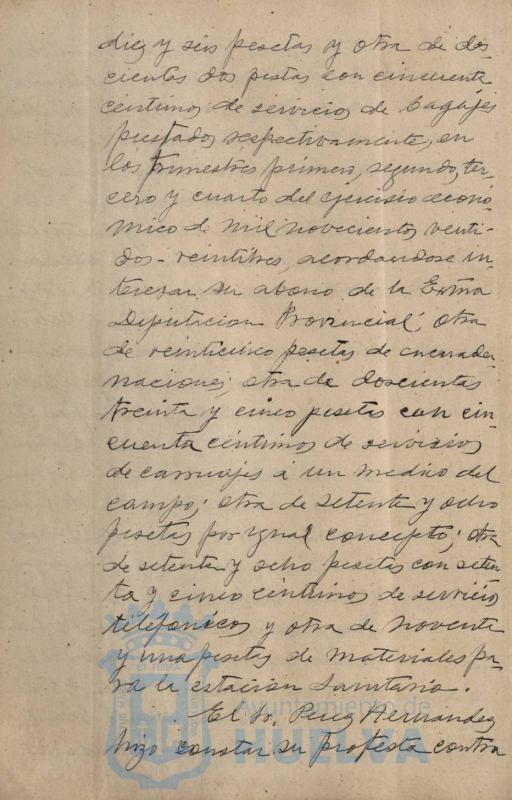 diez y seis pesetas y otra de dos-
cientas dos pstas con cincuenta
céntimos de servicio de bagajes
prestados respectivamente, en
los trimestres primero, segundo, ter-
cero y cuarto del ejercicio econó-
mico de mil novecientos venti-
dos - veintitres, acordandose in-
teresar su abono de la Exma
Diputacion Provincial; otra
de veinticinco pesetas de encuader-
naciones; otra de doscientas
treinta y cinco pesetas con cin-
cuenta céntimos de servicios
de carruajes a un medico del
campo; otra de setenta y ocho
pesetas por igual concepto; otra
de setenta y ocho pesetas con seten-
ta y cinco céntimos de servicios
telefónicos y otra de noventa
y una pesetas de materiales pa-
ra la estacion sanitaria.
El Sr. Perez Hernandez
hizo constar su protesta contra
Ayuntamiento de
HUELVA